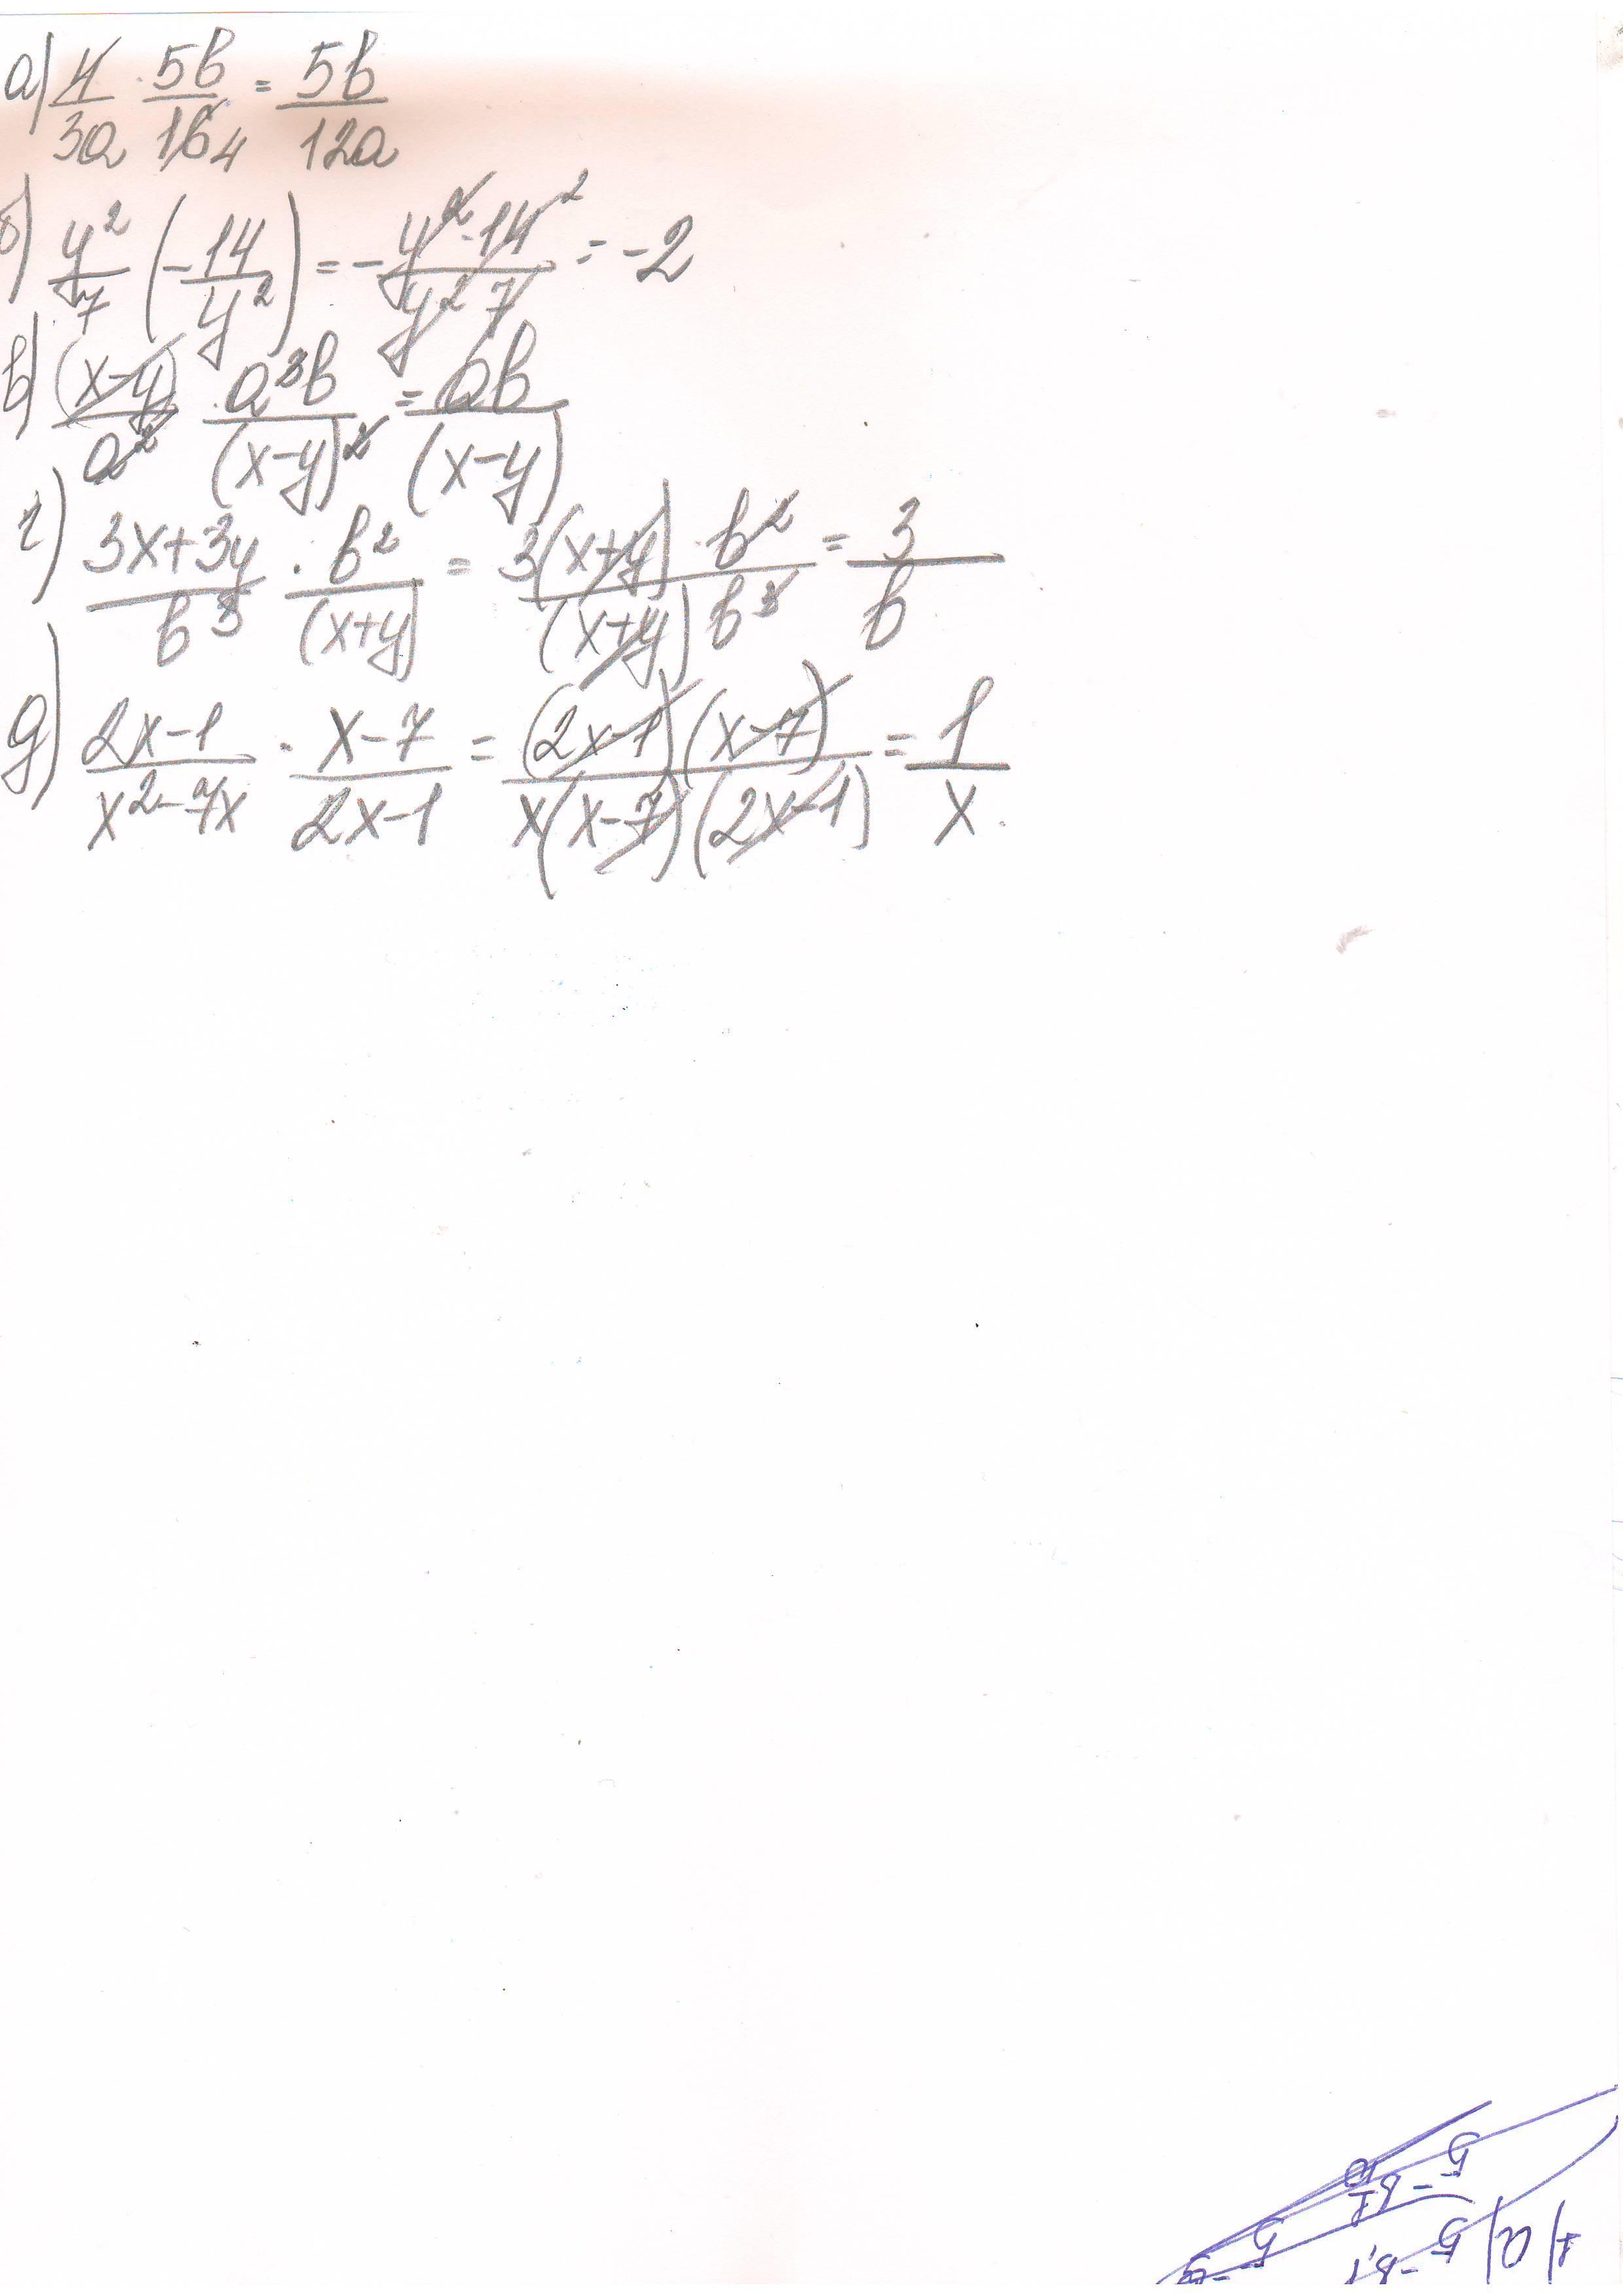 а) 4/3a · 5b/16 4 = 5b/12a
б) y²/7 (-14/y²) = - y²·14 2/y² 7 = -2
в) (x-y)/a² · a³b/(x-y)² = ab/(x-y)
г) 3x+3y/b³ · b²/(x+y) = 3(x+y) · b²/(x+y) b³ = 3/b
д) 2x-1/x²-7x · x-7/2x-1 = (2x-1)(x-7)/x(x-7)(2x-1) = 1/x